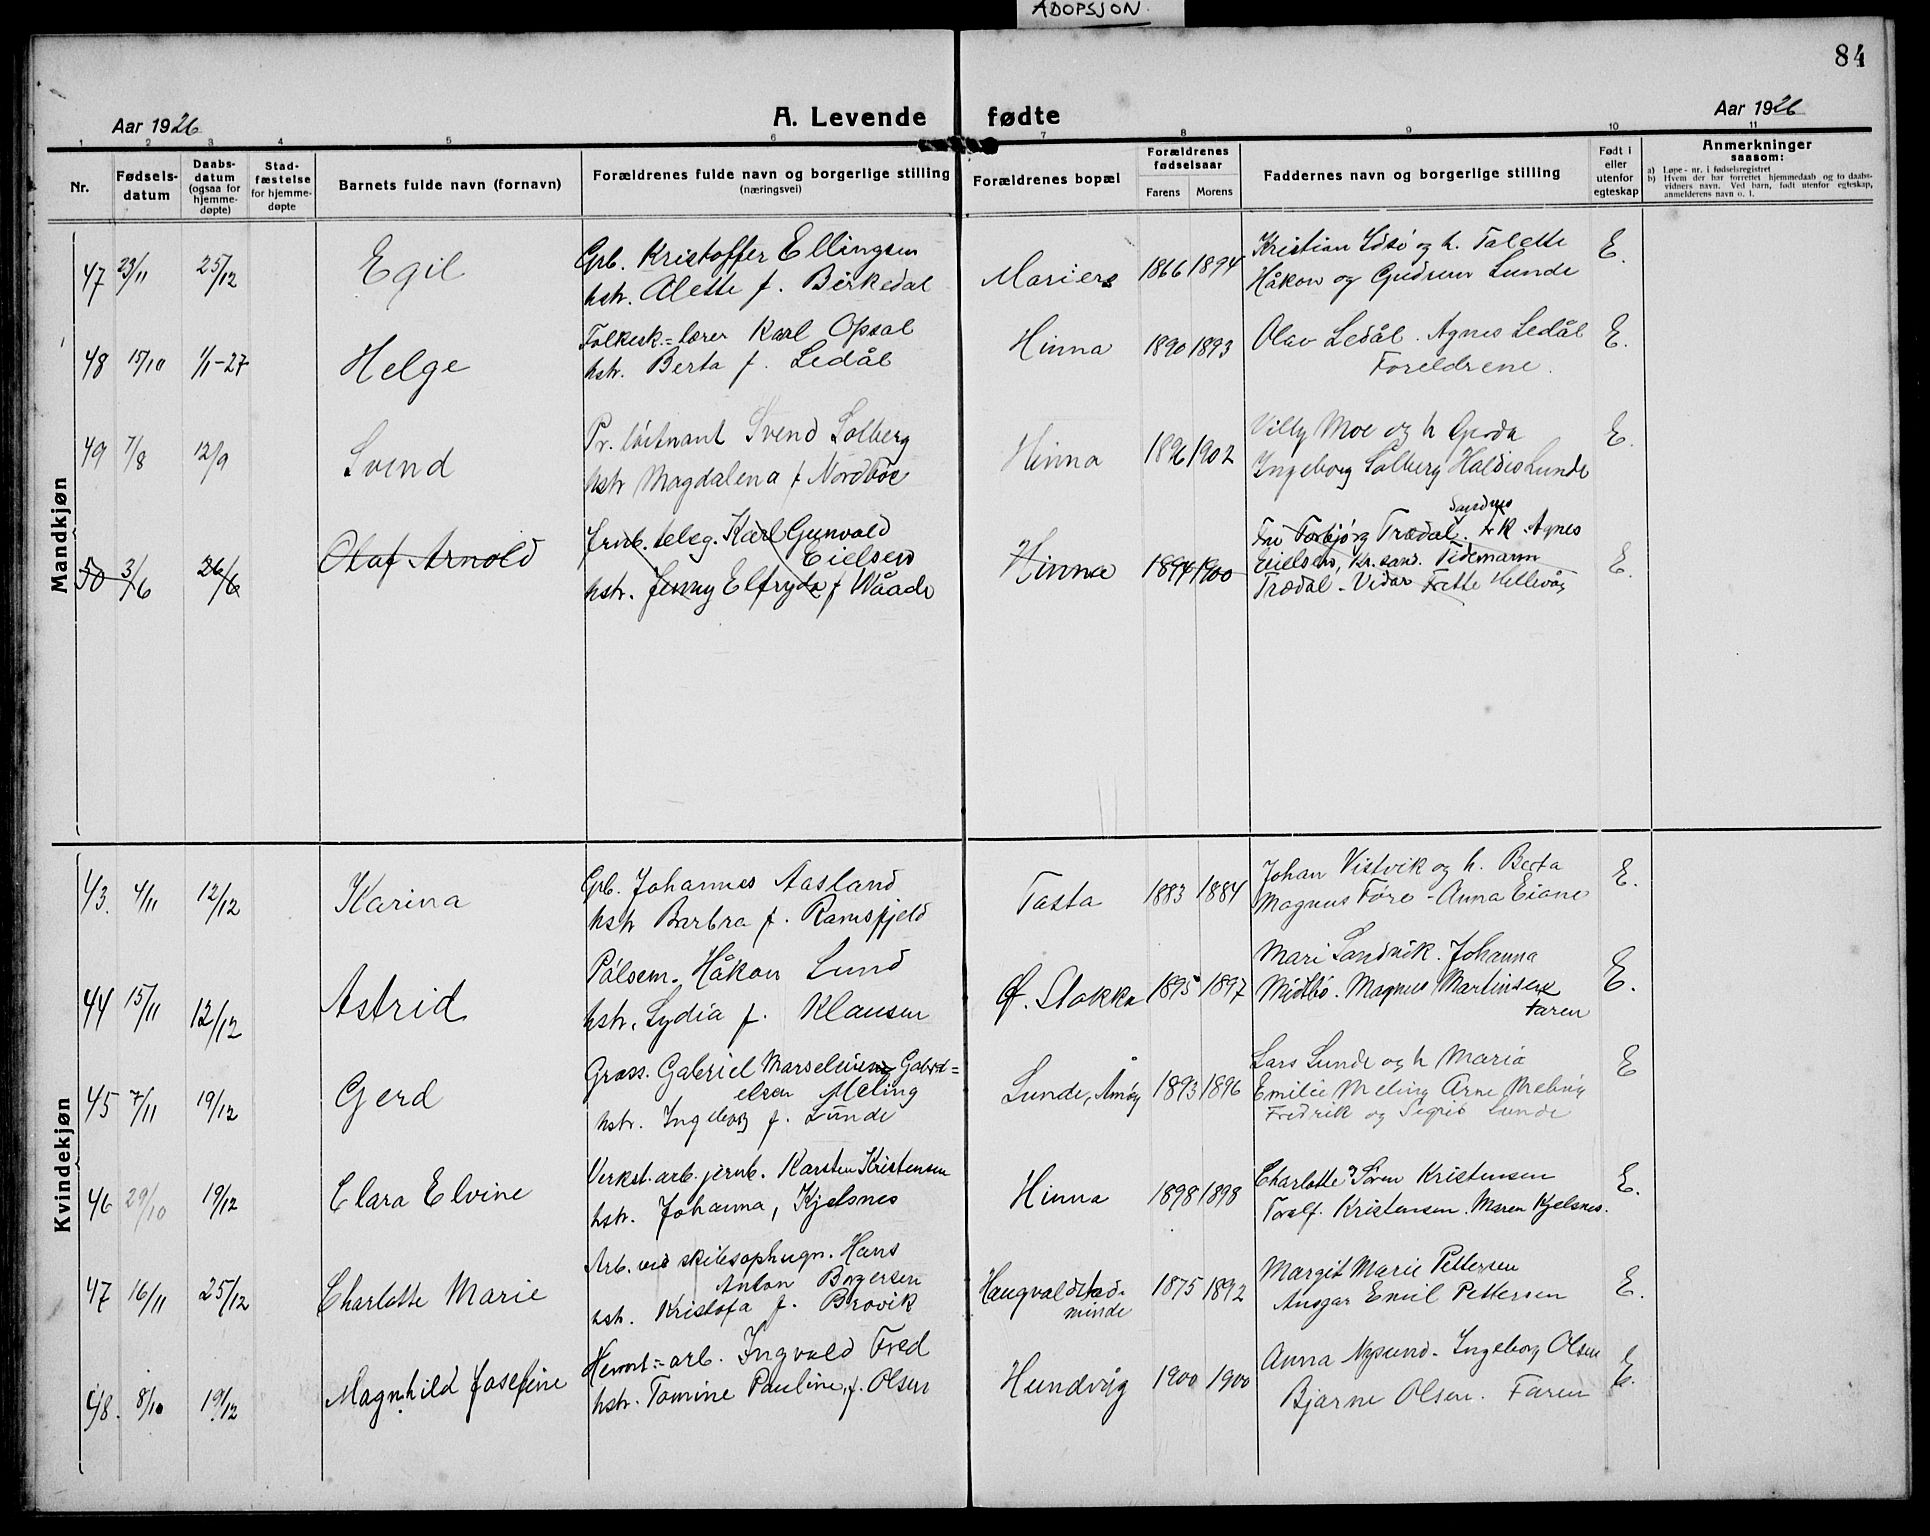 ADOPSJON.
84
Aar 1926
A. Levende fødte
Aar 1926
1 2 3 4 5 6 7 8 9 10 11
Nr.
Fødsels-
datum
Daabs-
datum
(ogsaa for
hjemme-
døpte)
Stad-
fæstelse
for hjemme-
døpte
Barnets fulde navn (fornavn)
Forældrenes fulde navn og borgerlige stilling
(næringsvei)
Forældrenes bopæl
Forældrenes
fødselsaar
Farens Morens
Faddernes navn og borgerlige stilling
Født i
eller
utenfor
egteskap
Anmerkninger
saasom:
a) Løpe-nr. i fødselsregistret
b) Hvem der har forrettet hjemmedaab og to daabs-
vidners navn. Ved barn, født utenfor egteskap,
anmelderens navn o. l.
Mandkjøn
47 23/11 25/12 Egil
Grb. Kristoffer Ellingsen
hstr. Alette f. Birkedal
Mariero 1866 1894
Kristian Idsö og h. Talette
Håkon og Gudrun Lunde
E.
48 15/10 1/1-27 Helge
Folkesk.=lærer Karl Opsal
hstr. Berta f. Ledål
Hinna 1890 1893
Olav Ledål. Agnes Ledål
Foreldrene.
E.
49 7/8 12/9 Svend
Pr. löitnant Svend Solberg
hstr Magdalena f Nordböe
Hinna 1896 1902
Villy Moe og h Gerda
Ingeborg Solberg Haldis Lunde
E.
50 3/6 26/6 Olaf Arnold
Jrnb. teleg. Karl Gunvald
Eielsen
hstr. Jenny Elfryda f Waade
Hinna 1894 1900
Sandnes
Fru Torbjørg Trædal. Frk. Agnes
Eielsen, Kr.sand. Tidemann
Trædal. Vidar Fritte Hellevåg
E.
Kvindekjøn
43. 4/11 12/12 Karina
Grb. Johannes Aasland
hstr Barbra f. Ramsfjeld
Tasta 1883 1884
Johan Vistvik og h. Berta
Magnus Före - Anna Eiane
E.
44 15/11 12/12 Astrid
Pölsem. Håkon Lund
hstr. Lydia f. Klausen
Ø. Stokka 1895 1897
Mari Sandvik. Johanna
Midtbö. Magnus Martinsen
Faren
E.
45 7/11 19/12 Gerd
Gross. Gabriel Marselius Gabri=
elsen Meling
hstr. Ingeborg f. Lunde
Lunde, Åmöy 1893 1896
Lars Lunde og h Maria
Emilie Meling Arne Meling
Fredrik og Sigrid Lunde
E
46 29/10 19/12 Clara Elvine
Verkst.arb. jernb. Karsten Kristensen
hstr. Johanna, Kjelsnes
Hinna 1898 1898
Charlotte, Sören Kristensen
Toralf. Kristensen. Maren Kjelsnes.
E.
47 16/11 25/12 Charlotte Marie
Arb. ved skibsophugn. Hans
Anton Borgersen
hstr. Kristofa f. Brovik
Haugvaldstad-
minde 1875 1892
Margit Marie Pettersen
Ansgar Emil Pettersen
E.
48. 8/10 19/12 Magnhild Josefine
Hermt=arb. Ingvald Fred
hstr. Tomine Pauline, f. Olsen
Hundvåg 1900 1900
Anna Nysund. Ingeborg Olsen
Bjarne Olsen. Faren
E.